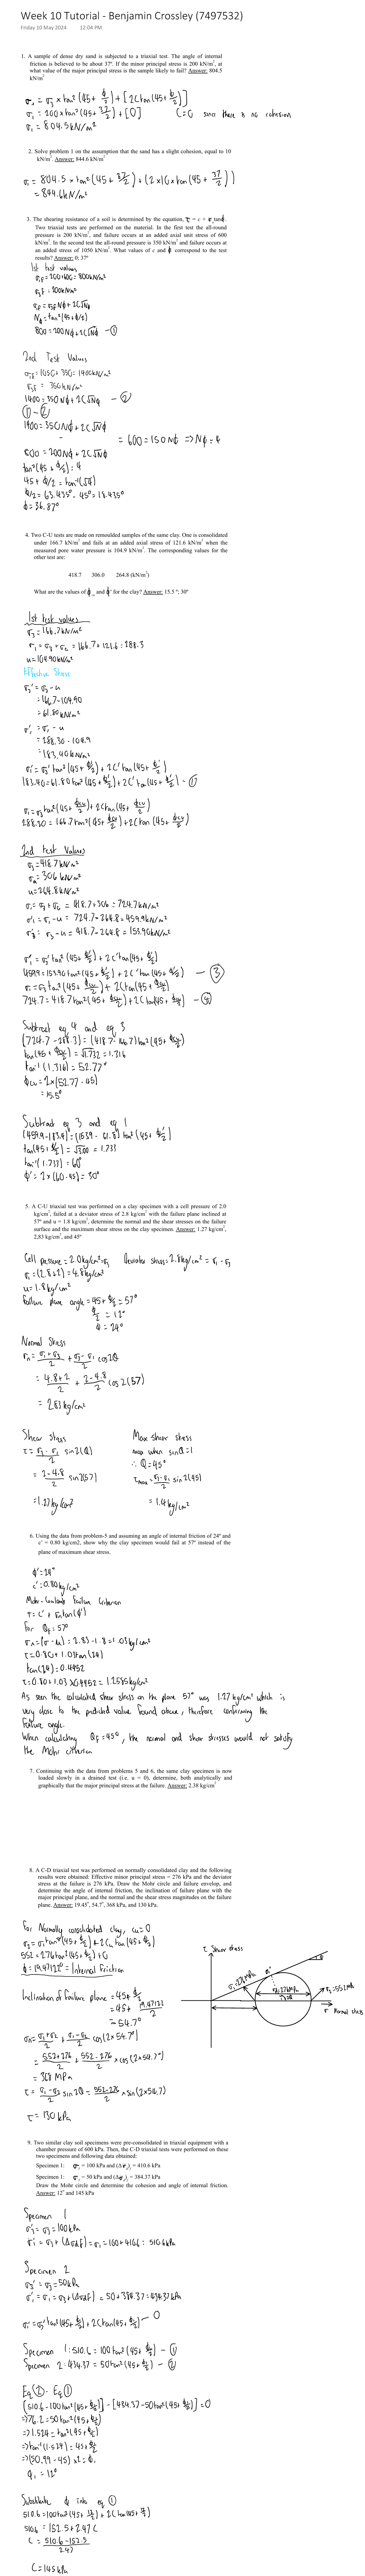 Week 10 Tutorial - Benjamin Crossley (7497532)
Friday 10 May 2024 12:04 PM
1. A sample of dense dry sand is subjected to a triaxial test. The angle of internal
friction is believed to be about 37°. If the minor principal stress is 200 kN/m², at
what value of the major principal stress is the sample likely to fail? Answer: 804.5
kN/m²
σ₁ = σ₃ × tan²(45 + φ/2) + [2C tan(45 + φ/2)]
σ₁ = 200 × tan²(45 + 37/2) + [0] C=0 since there is no cohesion
σ₁ = 804.5 kN/m²
2. Solve problem 1 on the assumption that the sand has a slight cohesion, equal to 10
kN/m². Answer: 844.6 kN/m²
σ₁ = 804.5 × tan²(45 + 37/2) + (2×10× tan(45 + 37/2))
= 844.6kN/m²
3. The shearing resistance of a soil is determined by the equation, τ = c + σ tanϕ.
Two triaxial tests are performed on the material. In the first test the all-round
pressure is 200 kN/m², and failure occurs at an added axial unit stress of 600
kN/m². In the second test the all-round pressure is 350 kN/m² and failure occurs at
an added stress of 1050 kN/m². What values of c and ϕ correspond to the test
results? Answer: 0; 37°
1st test values
σ₁F = 200+600 = 800kN/m²
σ₃F = 200kN/m²
σ₁F = σ₃F Nϕ + 2C√Nϕ
Nϕ = tan²(45+ϕ/2)
800 = 200Nϕ + 2C√Nϕ -①
2nd Test Values
σ₁F = 1050+350 = 1400kN/m²
σ₃F = 350kN/m²
1400 = 350Nϕ + 2C√Nϕ - ②
①-②
1400 = 350Nϕ + 2C√Nϕ
- = 600 = 150Nϕ => Nϕ = 4
800 = 200Nϕ + 2C√Nϕ
tan²(45 + ϕ/2) = 4
45 + ϕ/2 = tan⁻¹(√4)
ϕ/2 = 63.435° - 45° = 18.435°
ϕ = 36.87°
4. Two C-U tests are made on remoulded samples of the same clay. One is consolidated
under 166.7 kN/m² and fails at an added axial stress of 121.6 kN/m² when the
measured pore water pressure is 104.9 kN/m². The corresponding values for the
other test are:
418.7 306.0 264.8 (kN/m²)
What are the values of ϕcu and ϕ' for the clay? Answer: 15.5 °; 30°
1st test values
σ₃ = 166.7kN/m²
σ₁ = σ₃ + σa = 166.7+121.6 = 288.3
u = 104.90kN/m²
Effective Stress
σ₃' = σ₃ - u
= 166.7-104.90
= 61.80 kN/m²
σ₁' = σ₁ - u
= 288.30 - 104.9
= 183.40kN/m²
σ₁' = σ₃' tan²(45 + ϕ'/2) + 2C' tan(45+ ϕ'/2)
183.40 = 61.80 tan²(45 + ϕ'/2) + 2C' tan(45+ ϕ'/2) -①
σ₁ = σ₃ tan²(45 + ϕcu/2) + 2C tan(45+ ϕcu/2)
288.30 = 166.7 tan²(45+ ϕcu/2) + 2C tan(45 + ϕcu/2)
2nd test Values
σ₃ = 418.7kN/m²
σa = 306 kN/m²
u = 264.8kN/m²
σ₁ = σ₃ + σa = 418.7+306 = 724.7kN/m²
σ'₁ = σ₁ - u = 724.7-264.8 = 459.9kN/m²
σ'₃ = σ₃ - u = 418.7-264.8 = 153.90kN/m²
σ'₁ = σ'₃ tan²(45 + ϕ'/2) + 2C' tan(45+ ϕ'/2)
459.9 = 153.90 tan²(45 + ϕ'/2) + 2C' tan(45+ ϕ'/2) - ③
σ₁ = σ₃ tan²(45 + ϕcu/2) + 2C tan(45+ ϕcu/2)
724.7 = 418.7 tan²(45 + ϕcu/2) + 2C tan(45+ ϕcu/2) -④
Subtract eq 4 and eq 3
(724.7 - 288.3) = (418.7 - 166.7) tan²(45+ ϕcu/2)
tan(45 + ϕcu/2) = √1.732 = 1.316
tan⁻¹(1.316) = 52.77°
ϕcu = 2×(52.77-45)
= 15.5°
Subtract eq 3 and eq 1
(459.9-183.4) = (153.9 - 61.8) tan²(45+ ϕ'/2)
tan(45+ ϕ'/2) = √3.00 = 1.733
tan⁻¹(1.733) = 60°
ϕ' = 2×(60-45) = 30°
5. A C-U triaxial test was performed on a clay specimen with a cell pressure of 2.0
kg/cm², failed at a deviator stress of 2.8 kg/cm² with the failure plane inclined at
57° and u = 1.8 kg/cm², determine the normal and the shear stresses on the failure
surface and the maximum shear stress on the clay specimen. Answer: 1.27 kg/cm²,
2,83 kg/cm², and 45°
Cell pressure = 2.0kg/cm² = σ₃ Deviator stress = 2.8kg/cm² = σ₁ - σ₃
σ₁ = (2.8+2) = 4.8kg/cm²
u = 1.8kg/cm²
Failure plane angle = 45 + ϕ/2 = 57°
ϕ/2 = 12°
ϕ = 24°
Normal Stress
σn = σ₁+σ₃/2 + σ₃-σ₁/2 cos2θ
= 4.8+2/2 + 2-4.8/2 cos2(57)
= 2.83kg/cm²
Shear Stress Max shear stress
τ = σ₃-σ₁/2 sin2(θ) max when sinθ=1
∴ θ=45°
= 2-4.8/2 sin2(57) τmax = σ₃-σ₁/2 sin2(45)
= 1.27kg/cm² = 1.4kg/cm²
6. Using the data from problem-5 and assuming an angle of internal friction of 24° and
c' = 0.80 kg/cm2, show why the clay specimen would fail at 57° instead of the
plane of maximum shear stress.
ϕ' = 24°
c' = 0.80kg/cm²
Mohr-Coulomb Failure Criterion
τ = c' + σn tan(ϕ')
For θF = 57°
σn = (σ - u) = 2.83 - 1.8 = 1.03kg/cm²
τ = 0.80+ 1.03 tan(24)
tan(24) = 0.4452
τ = 0.80 + 1.03 × 0.4452 = 1.2585kg/cm²
As seen the calculated shear stress on the plane 57° was 1.27kg/cm² which is
very close to the predicted value found above, therefore confirming the
failure angle.
When calculating θF = 45°, the normal and shear stresses would not satisfy
the Mohr criterion
7. Continuing with the data from problems 5 and 6, the same clay specimen is now
loaded slowly in a drained test (i.e. u = 0), determine, both analytically and
graphically that the major principal stress at the failure. Answer: 2.38 kg/cm²
8. A C-D triaxial test was performed on normally consolidated clay and the following
results were obtained: Effective minor principal stress = 276 kPa and the deviator
stress at the failure is 276 kPa. Draw the Mohr circle and failure envelope, then
determine the angle of internal friction, the inclination of failure plane with the
major principal plane, and the normal and the shear stress magnitudes on the failure
plane. Answer: 19.45°, 54.7°, 368 kPa, and 130 kPa.
For Normally consolidated clay, cu=0
σ₁ = σ₃ tan²(45+ ϕ/2) + 2Cu tan(45+ ϕ/2)
552 = 276 tan²(45+ ϕ/2) + 0
ϕ = 19.47122° = Internal Friction
Inclination of failure plane = 45+ ϕ/2
= 45+ 19.47122/2
= 54.7°
σn = σ₁+σ₃/2 + σ₁-σ₃/2 cos(2×54.7°)
= 552+276/2 + 552-276/2 × cos(2×54.7°)
= 368 MPa
τ = σ₁-σ₃/2 sin2θ = 552-276/2 × sin(2×54.7)
τ = 130kPa
τ Shear stress
σ₁=552kPa
Normal stress
9. Two similar clay soil specimens were pre-consolidated in triaxial equipment with a
chamber pressure of 600 kPa. Then, the C-D triaxial tests were performed on these
two specimens and following data obtained:
Specimen 1: σ₃ = 100 kPa and (Δσd)f = 410.6 kPa
Specimen 1: σ₃ = 50 kPa and (Δσd)f = 384.37 kPa
Draw the Mohr circle and determine the cohesion and angle of internal friction.
Answer: 12° and 145 kPa
Specimen 1
σ'₃ = σ₃ = 100kPa
σ'₁ = σ₃ + (Δσd)F = σ₁ = 100+410.6 = 510.6kPa
Specimen 2
σ₃' = σ₃ = 50kPa
σ'₁ = σ₁ = σ₃ + (Δσd)F = 50+384.37 = 434.37kPa
σ₁' = σ₃' tan²(45+ ϕ₁/2) + 2C tan(45+ ϕ₁/2) - ①
Specimen 1: 510.6 = 100 tan²(45+ ϕ₁/2) - ①
Specimen 2: 434.37 = 50 tan²(45+ ϕ₁/2) - ②
Eq② - Eq①
[510.6-100 tan²(45+ ϕ₁/2)] - [434.37-50 tan²(45+ ϕ₁/2)] = 0
=> 76.2 = 50 tan²(45+ ϕ₁/2)
=> 1.524 = tan²(45+ ϕ₁/2)
=> tan⁻¹(1.524) = 45+ ϕ₁/2
=> (50.99 - 45) ×2 = ϕ₁
ϕ₁ = 12°
Substitute ϕ into eq ①
510.6 = 100 tan²(45+ 12/2) + 2C tan(45+ 12/2)
510.6 = 152.5 + 2.47 C
C = 510.6-152.5/2.47
C = 145kPa